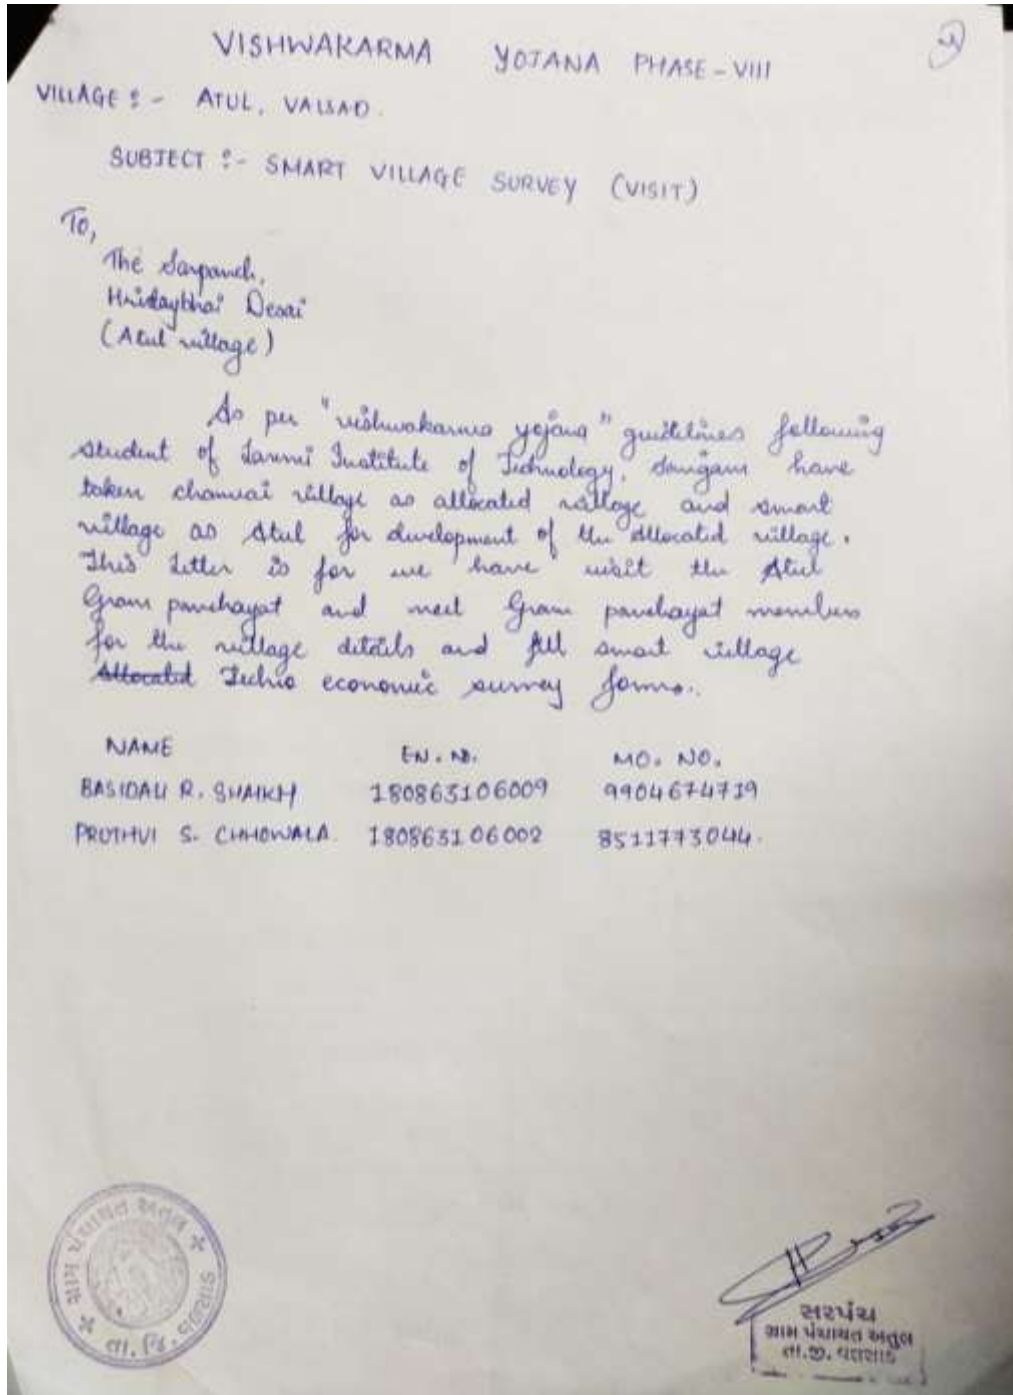 VISHWAKARMA YOJANA PHASE-VIII
VILLAGE :- ATUL, VALSAD.
SUBJECT :- SMART VILLAGE SURVEY (VISIT)
To,
The Sarpanch,
Hridaybhai Desai
(Atul village)
As per "vishwakarma yojana" guidelines following
student of Laxmi Institute of Technology, Sarigam have
taken chanvai village as allocated village and smart
village as Atul for development of the Allocated village.
This Letter is for we have visit the Atul
Gram panchayat and meet Gram panchayat members
for the village details and fill smart village
Allocated Techio economic survey forms.
NAME EN. NO. MO. NO.
BASIDALI R. SHAIKH 180863106009 9904674719
PRUTHVI S. CHHOWALA. 180863106002 8511773044.
ગ્રામ પંચાયત અતુલ
તા. જિ. વલસાડ
સરપંચ
ગ્રામ પંચાયત અતુલ
તા.જી. વલસાડ